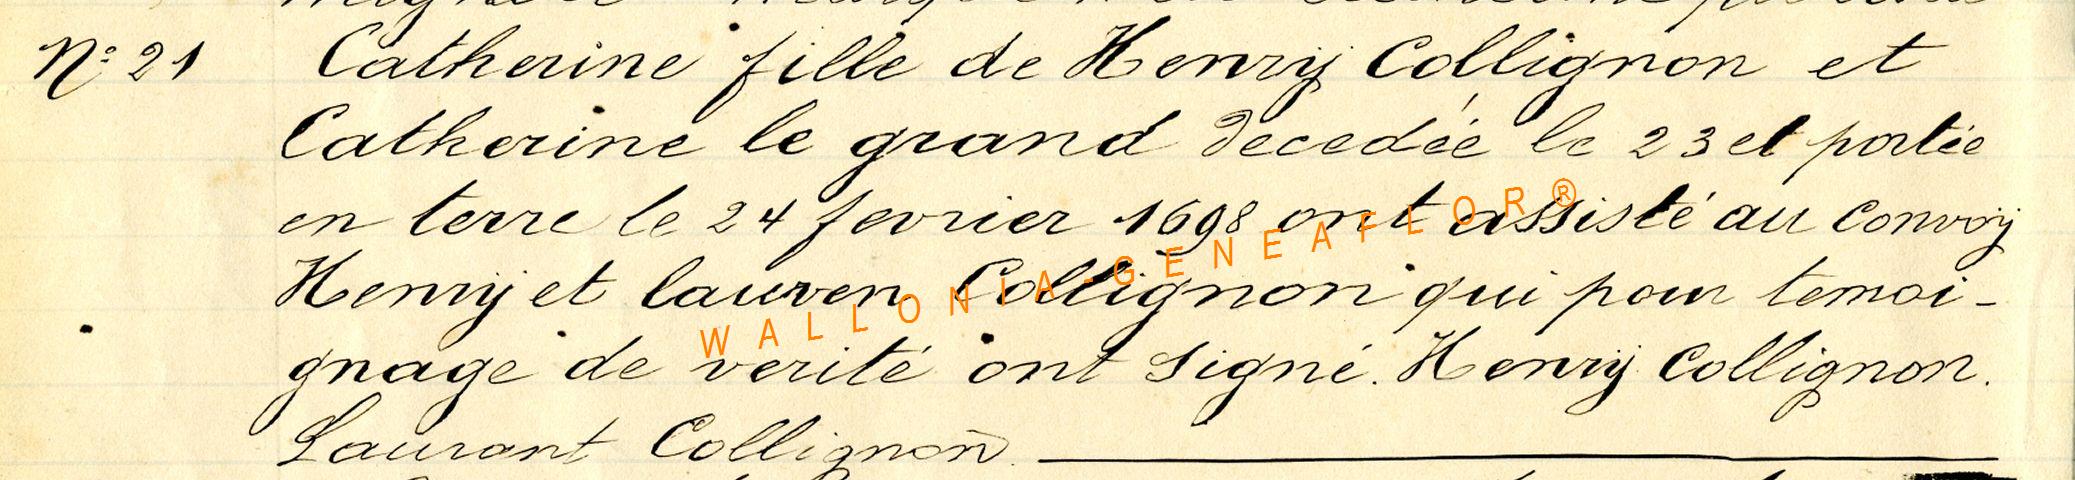 N° 21 Catherine fille de Henry Collignon et
Catherine le grand decedée le 23 et portée
en terre le 24 fevrier 1698 ont assisté au convoy
Henry et lauren Collignon qui pour temoi-
gnage de verité ont signé. Henry Collignon.
Laurant Collignon.
WALLONIA-GENEAFLOR®